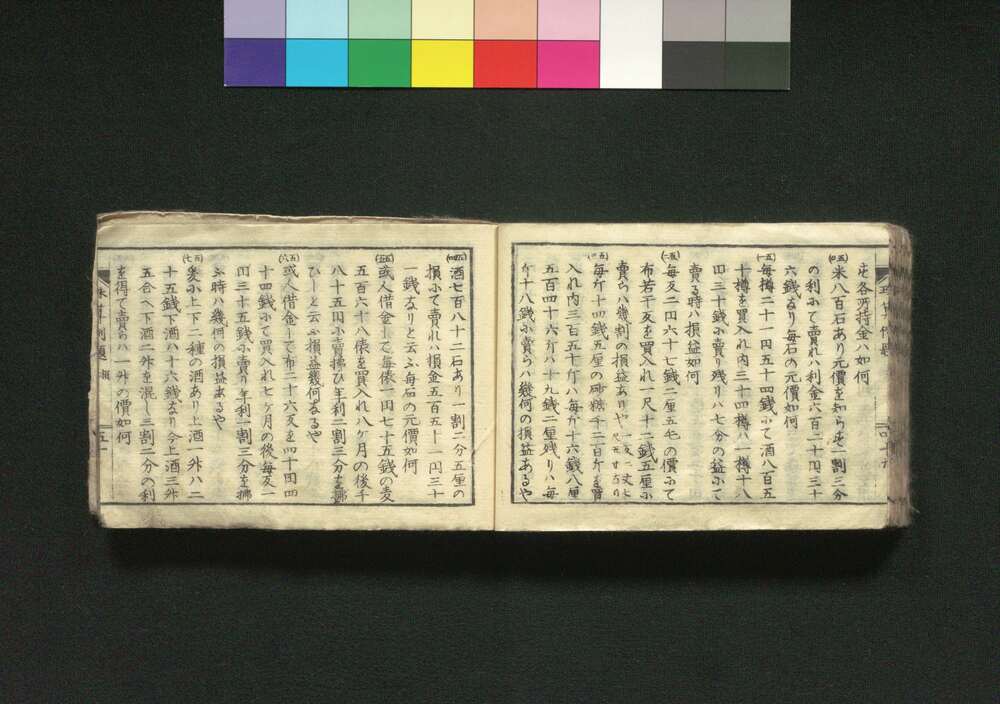 せ各所持金ハ如何
米八百石あり元價を知らせ一割三分
の利ふて賣れハ利金六百二十円三十
六銭なり毎石の元價如何
毎樽二十一円五十四銭ふて酒八百五
十樽を買入れ内三十四樽ハ一樽十八
円三十銭ふ賣り残りハ七分の益ふて
賣る時ハ損益如何
毎反二円六十七銭二厘五毛の價ふて
布若干反を買入れ一尺十二銭五厘ふ
賣らハ幾割の損益ありや
毎斤十四銭五厘の砂糖千二百斤を買
入れ内三百五十斤ハ毎斤十六銭八厘
五百四十六斤ハ十九銭二厘残りハ毎
斤十八銭ふ賣らハ幾何の損益あるや
酒七百八十二石あり一割二分五厘の
損ふて賣れハ損金五百五十一円三十
一銭なりと云ふ毎石の元價如何
或人借金して毎俵一円七十五銭の麦
五百六十八俵を買入れ八ケ月の後千
八十五円ふ賣拂ひ年利二割三分を拂
ひしと云ふ損益幾何なるや
或人借金して布二十六反を四十円四
十四銭ふて買入れ七ケ月の後毎反一
円三十五銭ふ賣り年利一割三分を拂
ふ時ハ幾何の損益あるや
爰ふ上下二種の酒あり上酒一升ハ二
十五銭下酒ハ十六銭なり今上酒三升
五合へ下酒二升を混し三割二分の利
を得て賣らハ一升の價如何